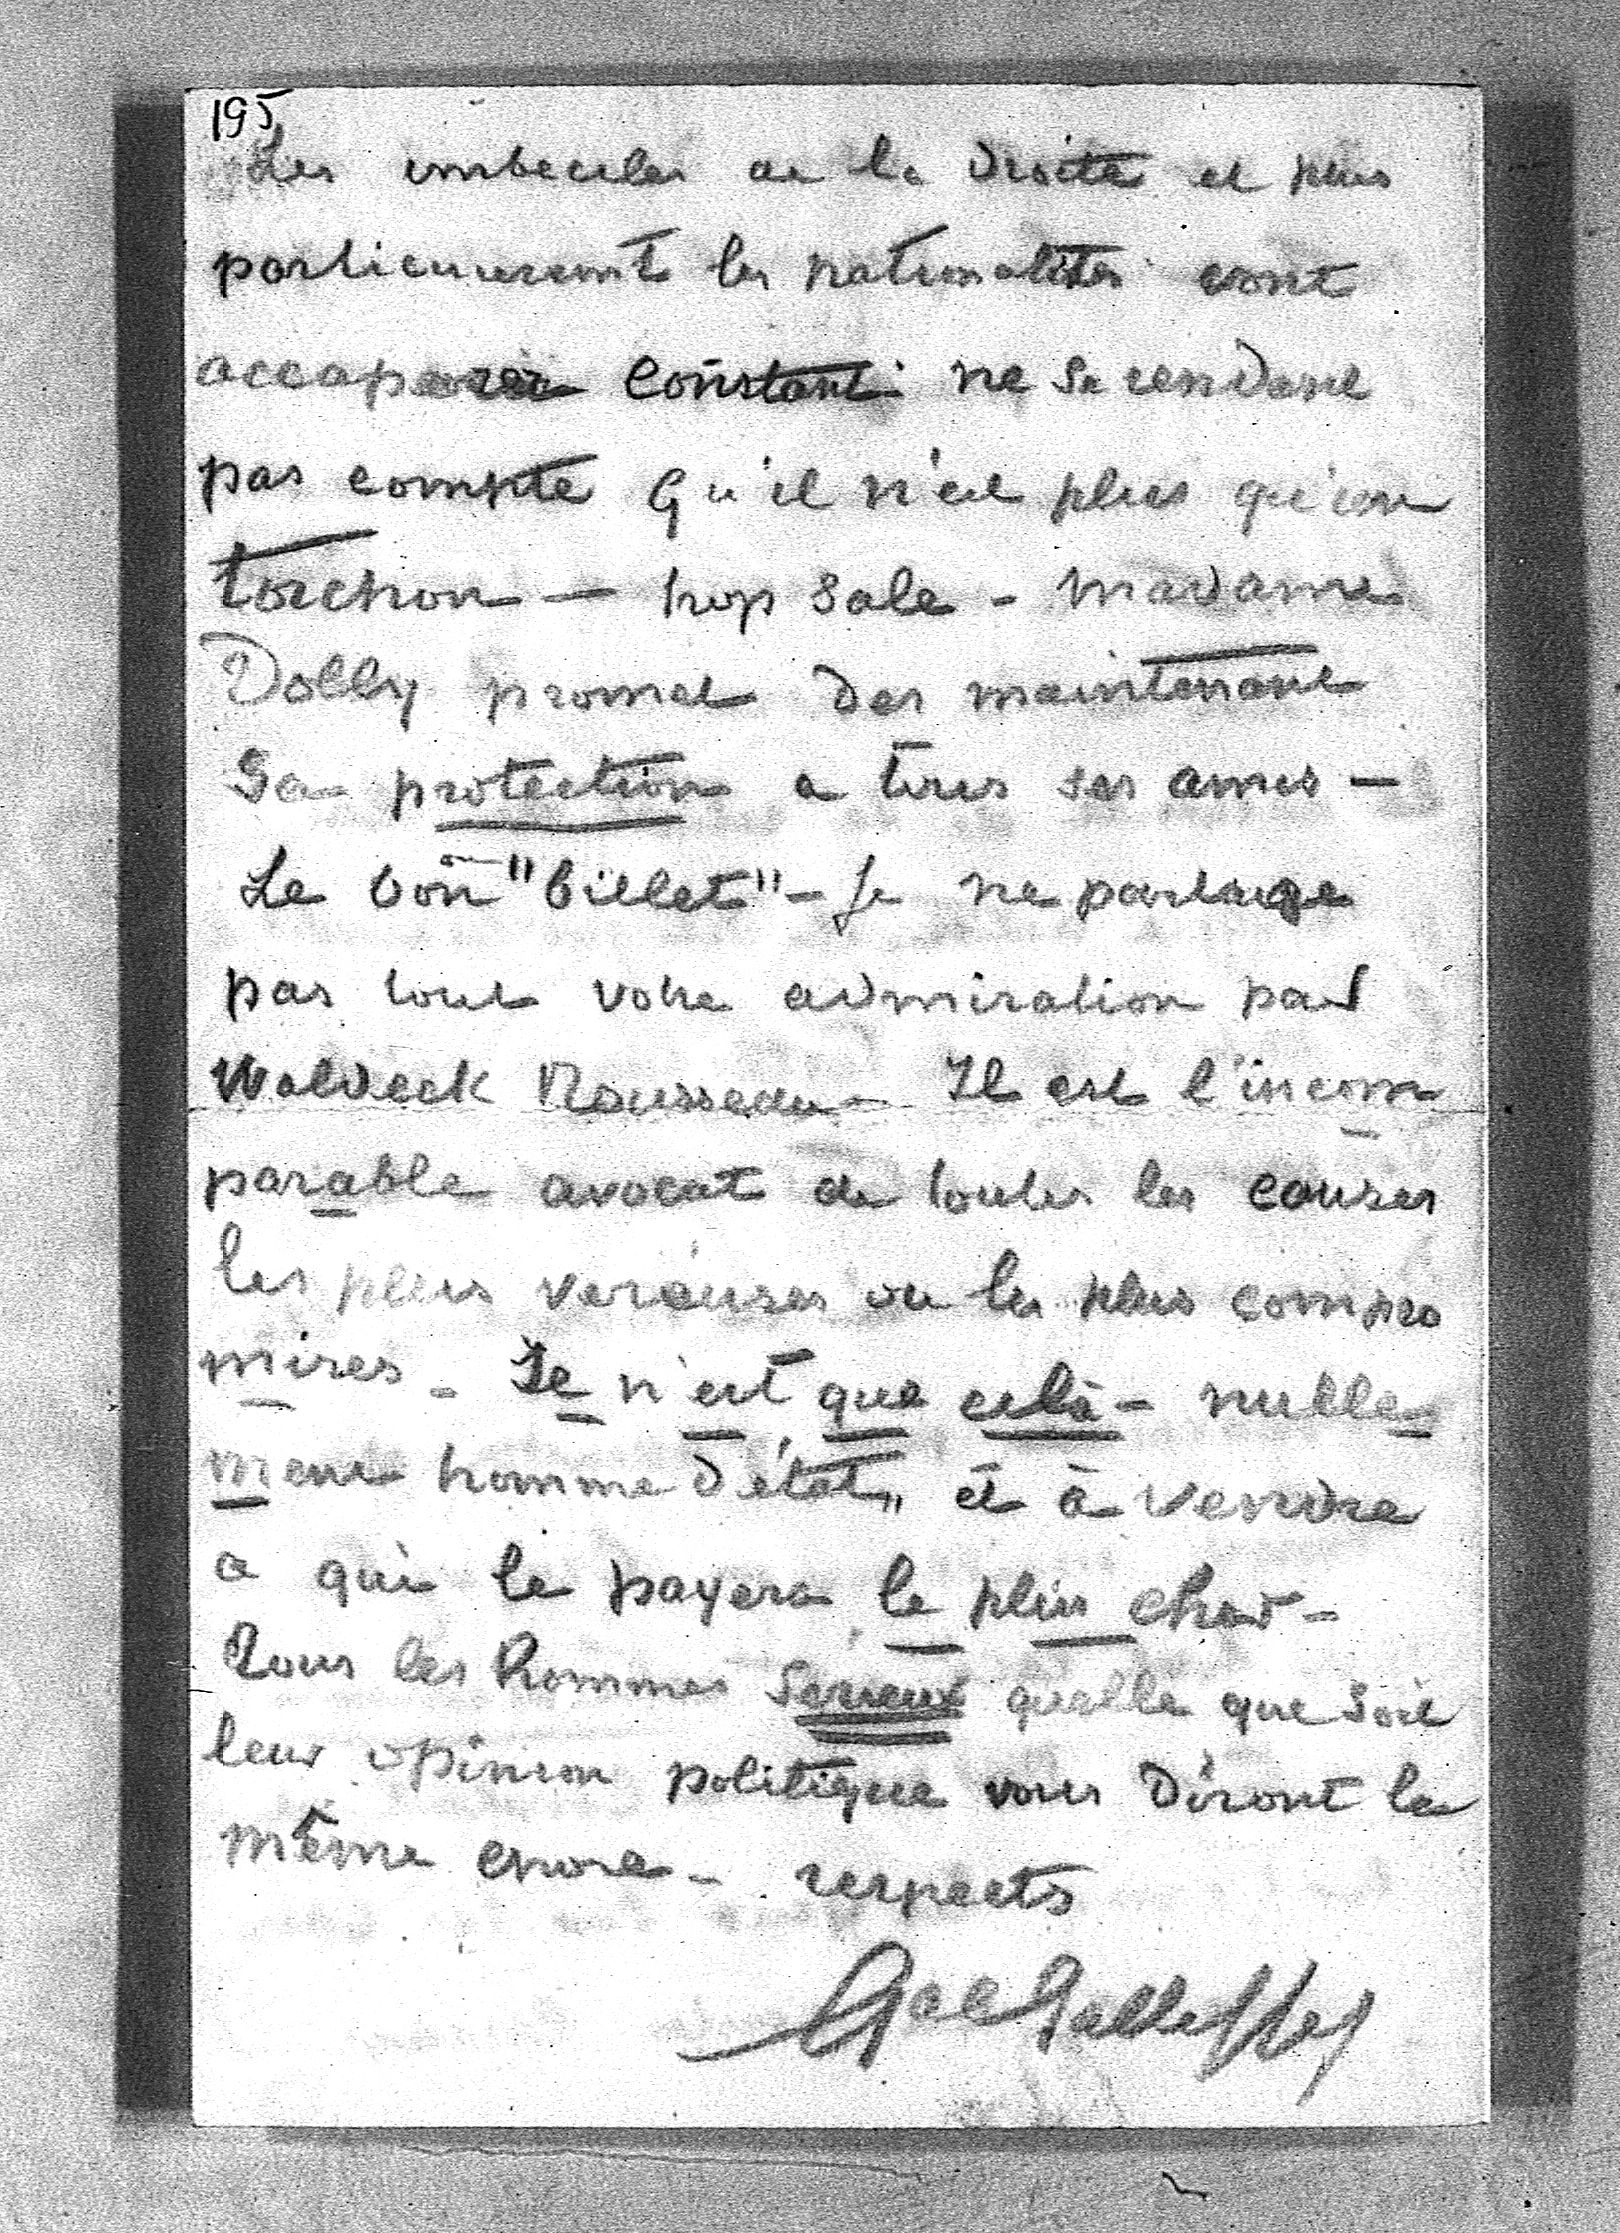 195
Les imbeciles de la droite et plus
particulierement les nationalistes vont
accaparer Constant: ne se rendant
pas compte qu'il n'est plus qu'un
torchon — trop sale - madame
Dolly promet des maintenant
Sa protection a tous ses amis —
Le bon "billet" - Je ne partage
pas tout votre admiration pour
Waldeck Rousseau - Il est l'incom
parable avocat de toutes les causes
les plus vereuses ou les plus compro
mises - Il n'est que celà - nulle
ment homme d'état, et à vendre
a qui le payera le plus cher -
Tous les hommes Serieux quelle que soit
leur opinion politique vous diront la
même chose - respects
Gal Galliffet